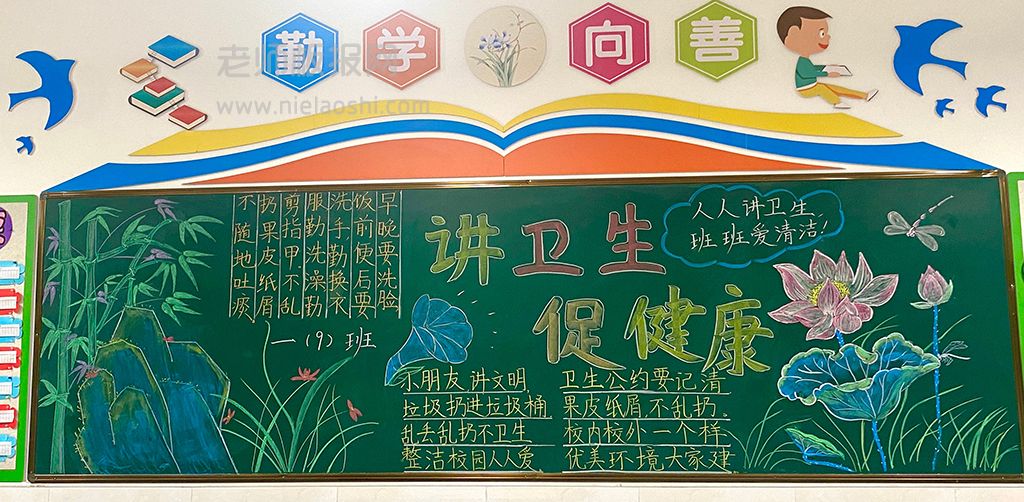 勤学向善
www.nielaoshi.com
早晚要洗脸
饭前便后要
洗手勤换衣
服勤洗澡勤
剪指甲不乱
扔果皮纸屑
不随地吐痰
一（9）班
讲卫生
促健康
人人讲卫生
班班爱清洁！
小朋友讲文明，
垃圾扔进垃圾桶
乱丢乱扔不卫生
整洁校园人人爱
卫生公约要记清
果皮纸屑，不乱扔。
校内校外一个样
优美环境大家建